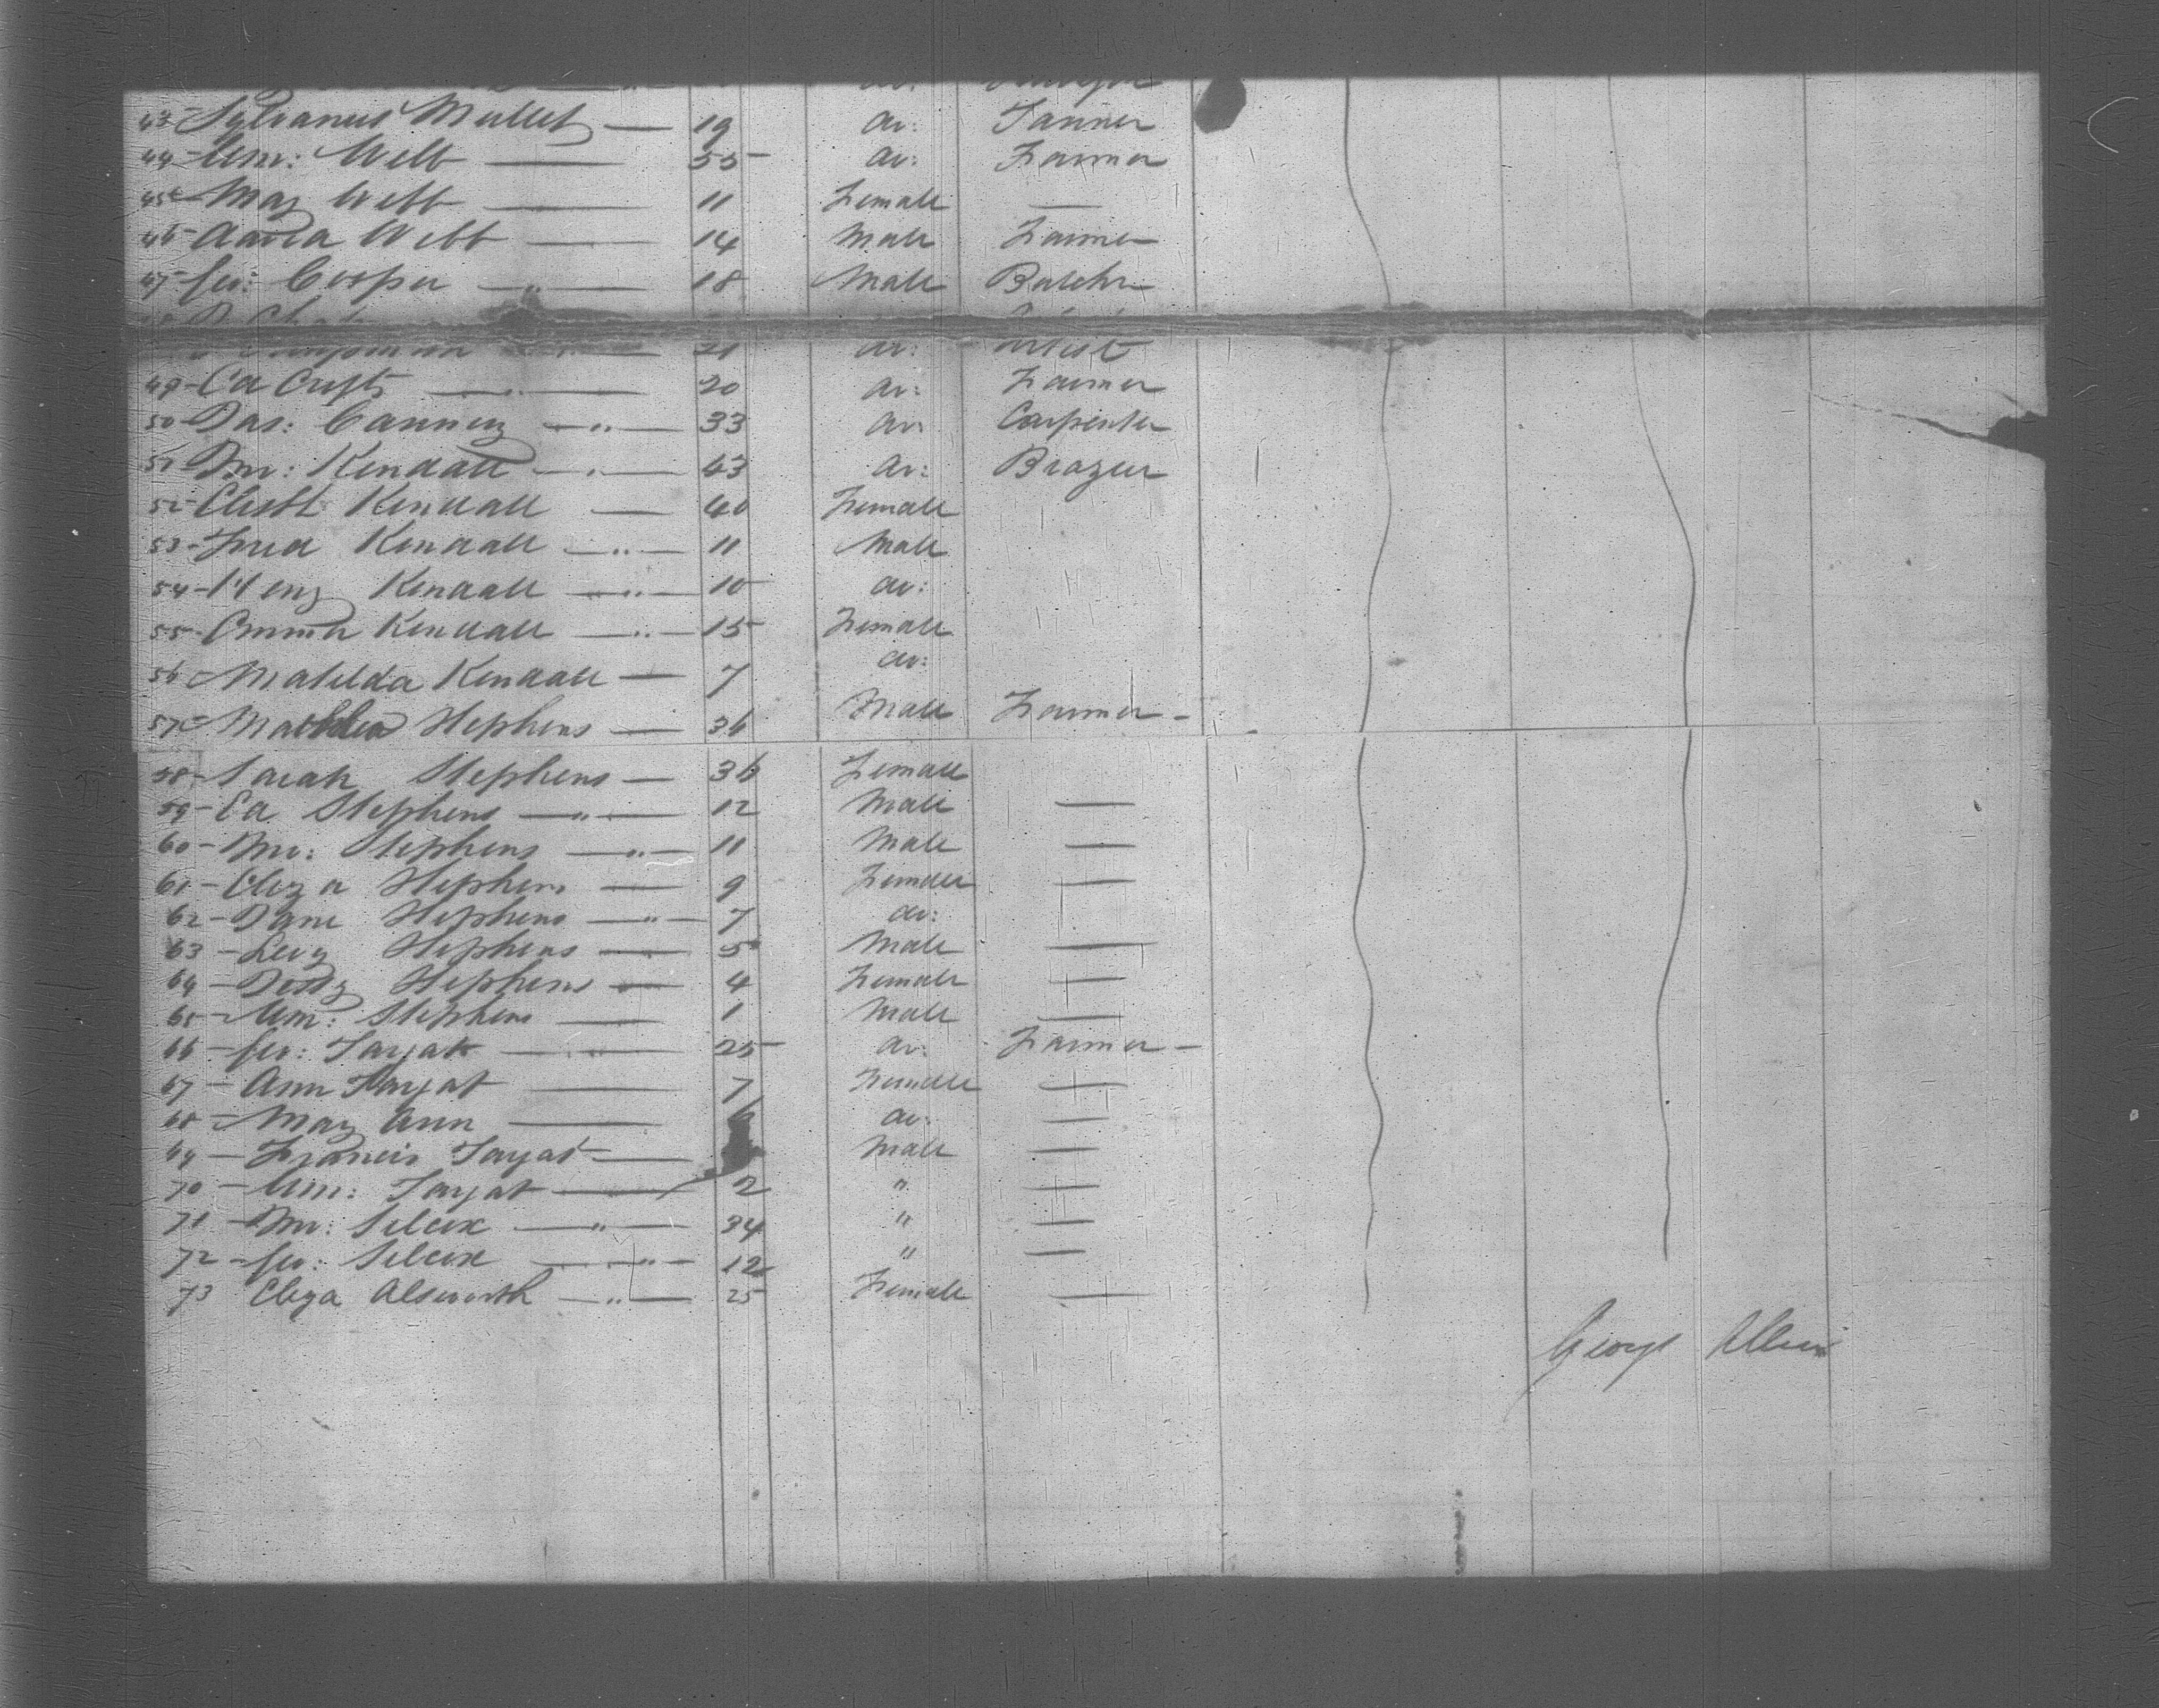 43 - Sylvanus Mullet — 19 do: Farmer
44 - Wm: Webb — 55 do: Farmer
45 - Mary Webb — 11 Female —
46 - David Webb — 14 Male Farmer
47 - Geo: Cooper — " — 18 Male Butcher
Chapman 21 do: Artist
49 - Ed Crufts — " — 20 do: Farmer
50 - Jas: Canning — " — 33 do: Carpenter
51 - Jno: Kendall — " — 43 do: Brazier
52 - Elisth Kendall — 40 Female
53 - Fred Kendall — " — 11 Male
54 - Heny Kendall — " — 10 do:
55 - Emma Kendall — " — 15 Female
56 - Matilda Kendall — 7 do:
57 - Stephens — 36 Male Farmer -
58 - Sarah Stephens — 36 Female
59 - Ed Stephens — " — 12 Male —
60 - Jno: Stephens — " — 11 Male —
61 - Eliza Stephens — 9 Female —
62 - Jane Stephens — " — 7 do:
63 - Levy Stephens — 5 Male —
64 - Stephens — 4 Female —
65 - Wm: Stephens — 1 Male —
66 - Geo: Sarjat — " — 25 do: Farmer -
67 - Ann Sarjat — 7 Female —
68 - Mary Ann — 6 do: —
69 - Francis Sarjat — Male —
70 - Wm: Sarjat — 2 " —
71 - Jno: Silcox — " — 34 " —
72 - Geo: Silcox — " — 12 " —
73 Eliza Alsworth — " — 25 Female —
George Allen